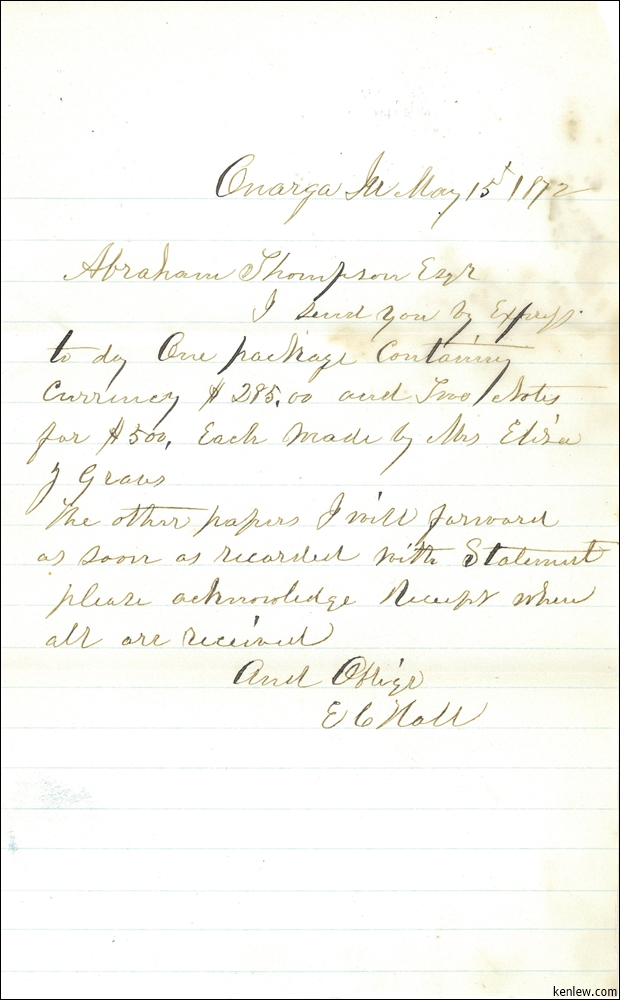 Onarga Ill May 15t 1872
Abraham Thompson Esqr
I send you by Express
to day One package Containing
Currency $ 285.00 and Two Notes
for $500, Each made by Mrs Eliza
J Graves
The other papers I will forward
as soon as recorded with Statement
please acknowledge Receipt when
all are received
And Oblige
E C Hall
kenlew.com